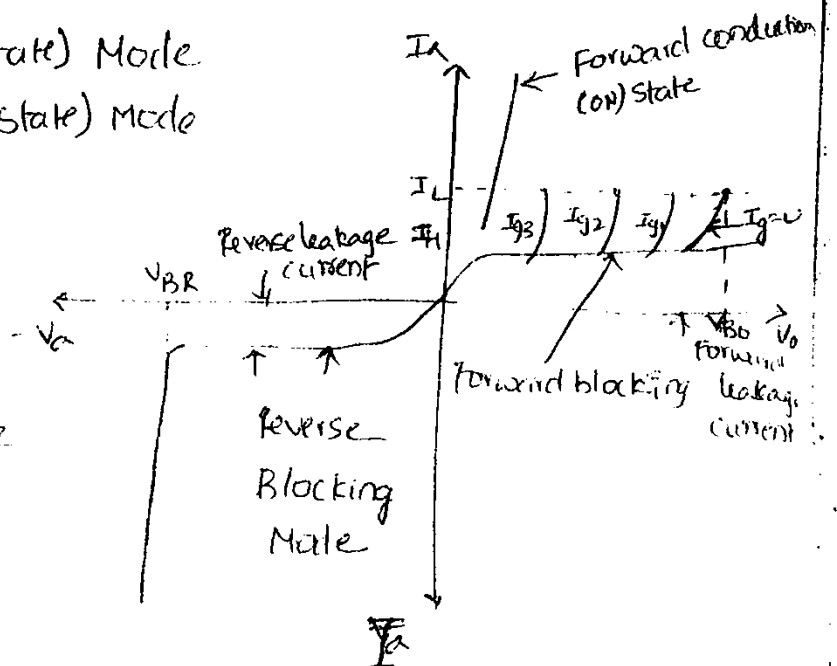 ate) Mode
state) Mode
Ia
Forward conduction
(ON) State
IL
IH
Ig3
Ig2
Ig1
Ig=0
Reverse leakage
current
VBR
-Va
VBO
Forward
leakage
current
Forward blocking
Reverse
Blocking
Mode